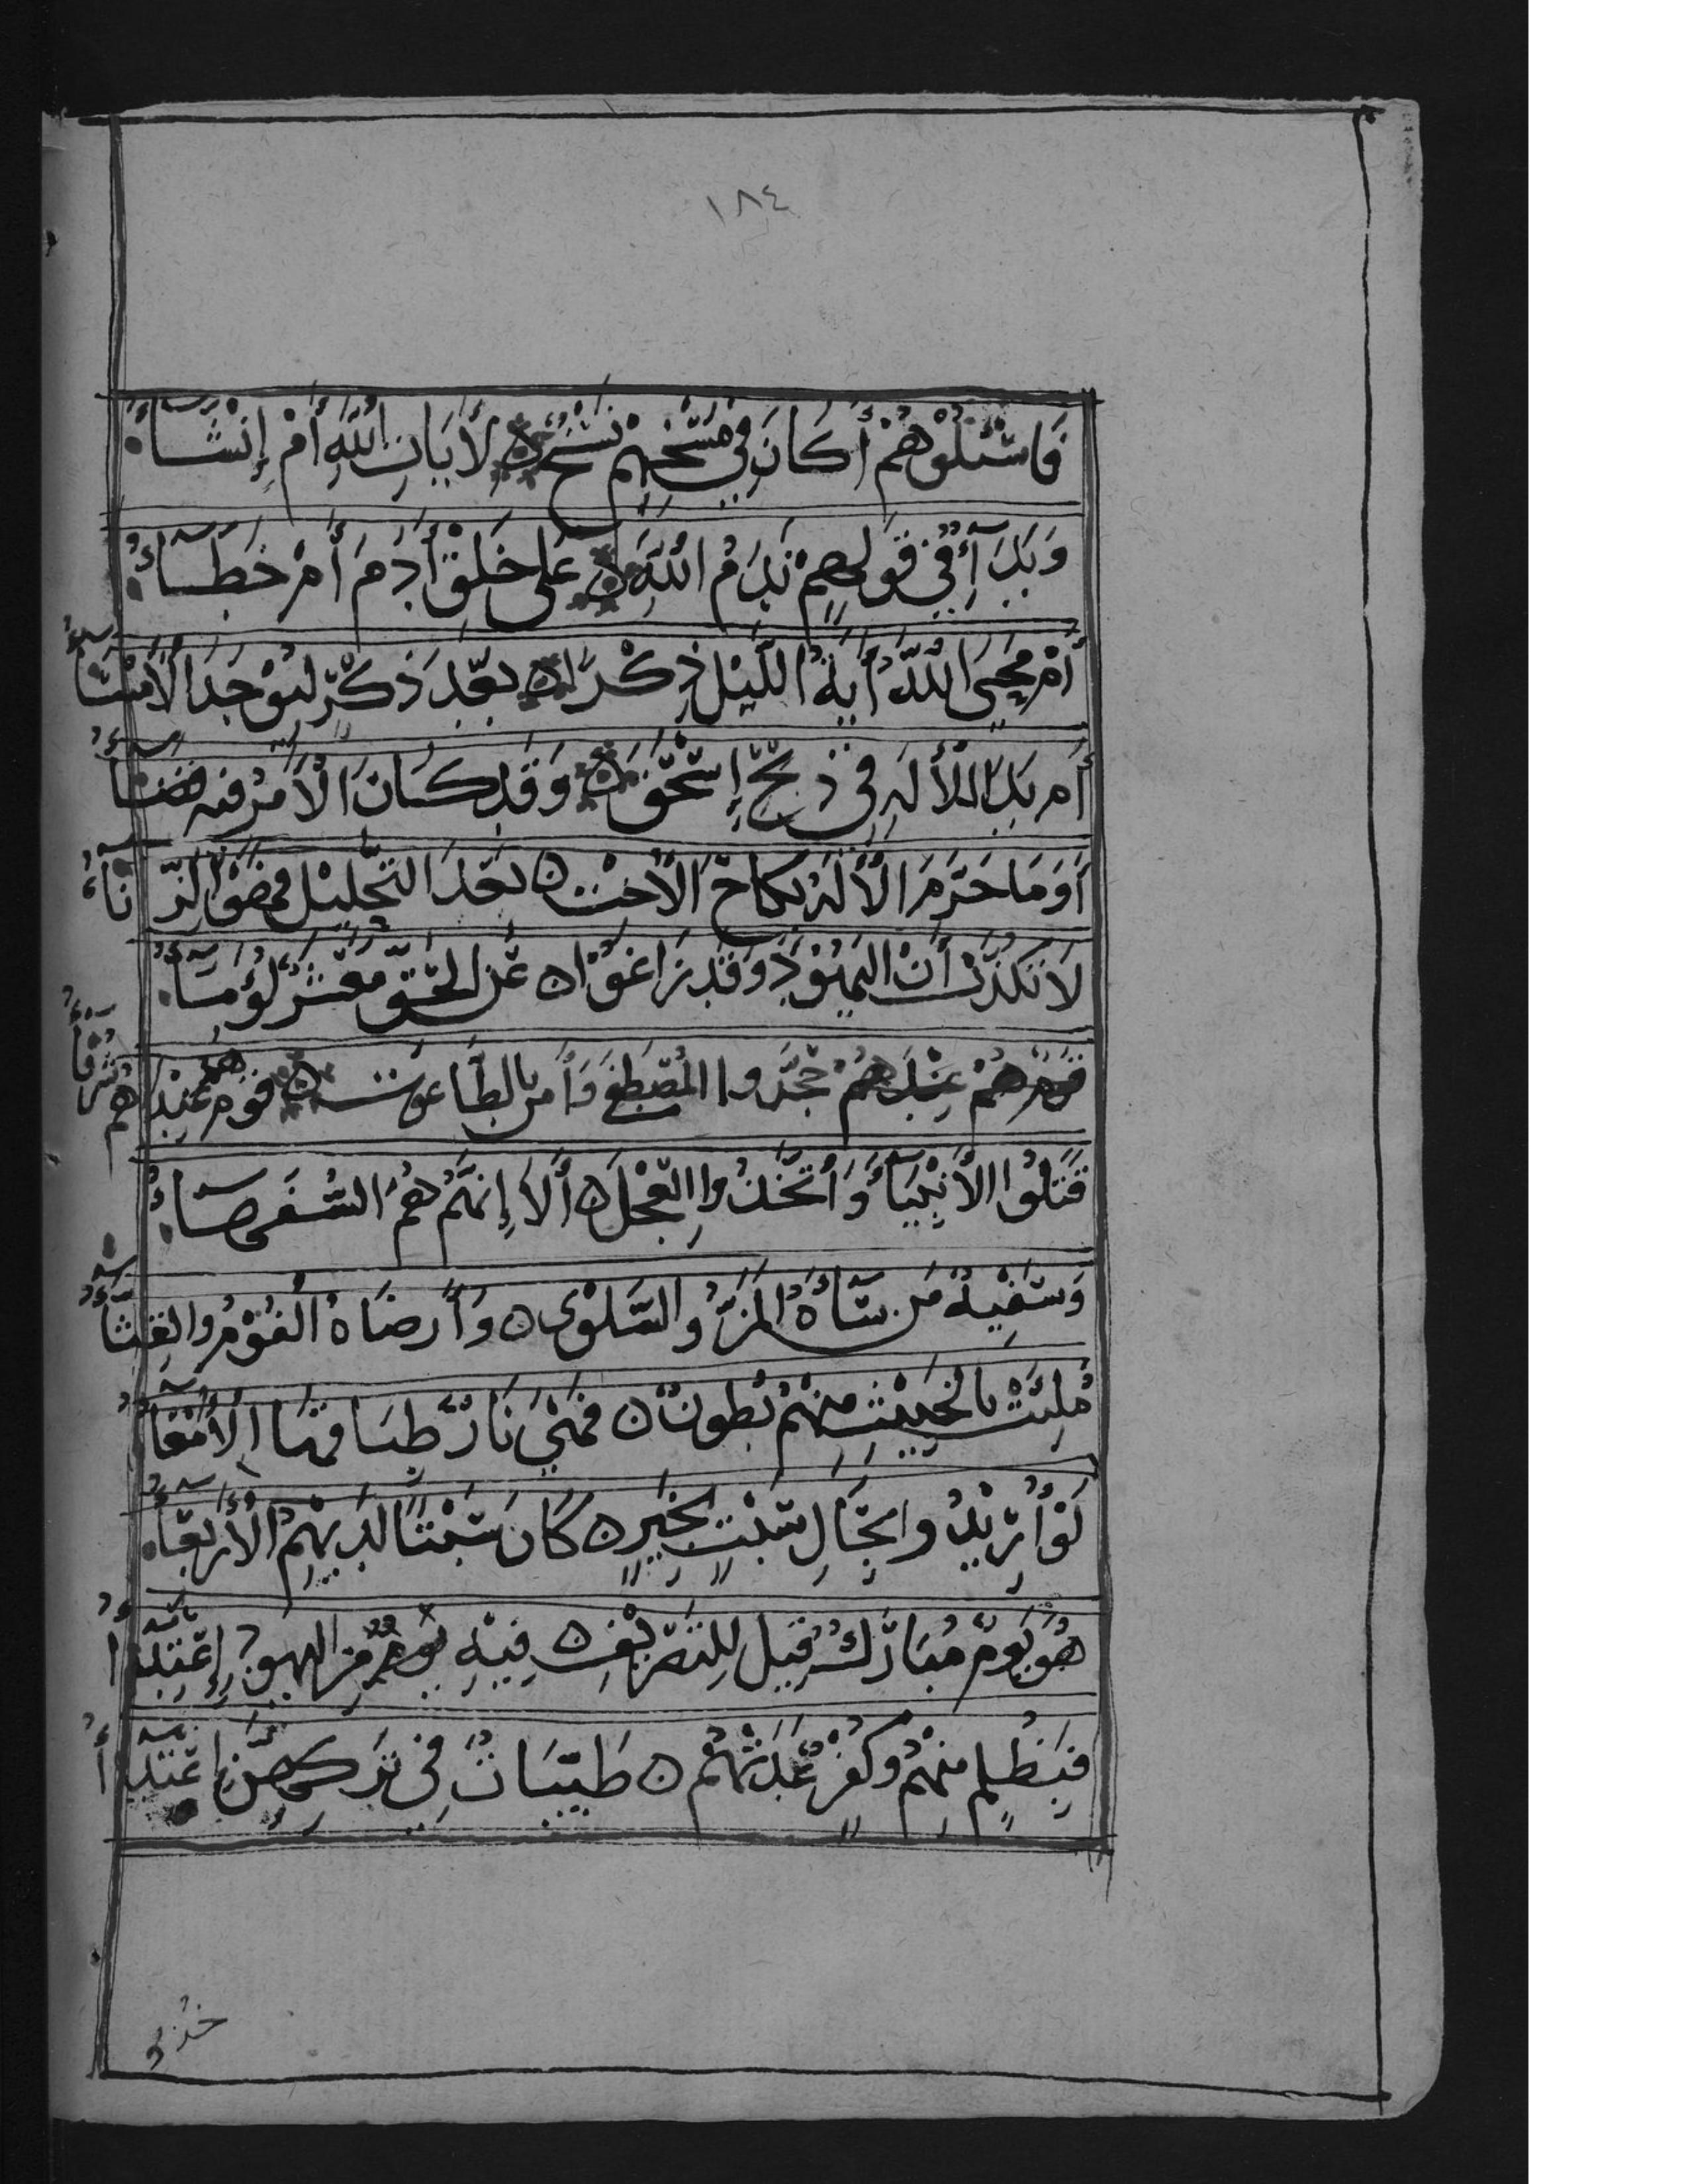 ١٨٤
فَاسْئَلُوْهُمْ أَكَانَ فِي مَسْخِهِمْ نَسْخٌ ن لأَيَاتِ اللَّهِ أَمْ إِنْشَاءُ
وَبَدَآءٌ فِي قَولِهِمْ نَدِمَ اللَّهُ ن عَلَى خَلْقِ أَدَمَ أَمْ خَطَاءُ
أَمْ مَحَى اللَّهُ أَيَةَ اللَّيْلِ ذِكْرًا ن بَعْدَ ذِكْرٍ لِيُوْجَدَ الأَمْسَاءُ
أَم بَدَا لِلأَلَهِ فِي ذَبْحِ إِسْحَقَ ن وَقَد كَانَ الأَمْرُ فيه قضَاءُ
أَوَمَا حَرَّمَ الأَلَهُ نِكَاحَ الأُخْتِ ن بَعْدَ التَّحْلِيْلِ فَهْوَ الزِّنَاءُ
لاَتُكَذِّبْ أَنَّ اليَهُوْدَ وَقَد زَاغُوْا ن عَنِ الحَقِّ مَعْشَرٌ لُؤَمَاءُ
جَحَدُوا المُصْطَفَى وَأَمَنَ بِالطَّاغُوتِ ن قَومٌ هُمْ عِنْدَهُم شُرَفَاءُ
قَتَلُوْا الأَنْبِيَآءَ وَأَتَّخَذُوا العِجْلَ ن أَلاَ إِنَّهُم هُمُ السُّفَهَاءُ
وَسَفِيْهٌ مَن سَآءَهُ المَنُّ والسَّلْوَى ن وَأَرضَاهُ الْفُوْمُ والقِثَّاءُ
مُلِئَتْ بِالخَبِيْثِ مِنْهُمْ بُطُونٌ ن فَهْيَ نَارٌ طِبَاقُهَا الأَمْعَاءُ
لَوْ أُرِيْدُوا بِحَالِ سَبْتٍ بِخَيرٍ ن كَانَ سَبْتًا لَدَيْهِمُ الأَرْبِعَاءُ
هُوَ يَومٌ مُبَارَكٌ قِيلَ لِلتَّصْرِيْفِ ن فِيْهِ مِنَ اليهود إِعْتِدَاءُ
فَبِظُلْمٍ مِنْهُمْ وَكُفْرٍ عَدَتْهُمْ ن طَيِّبَاتٌ فِي تَركِهِنَّ إِبْتِلاَءُ